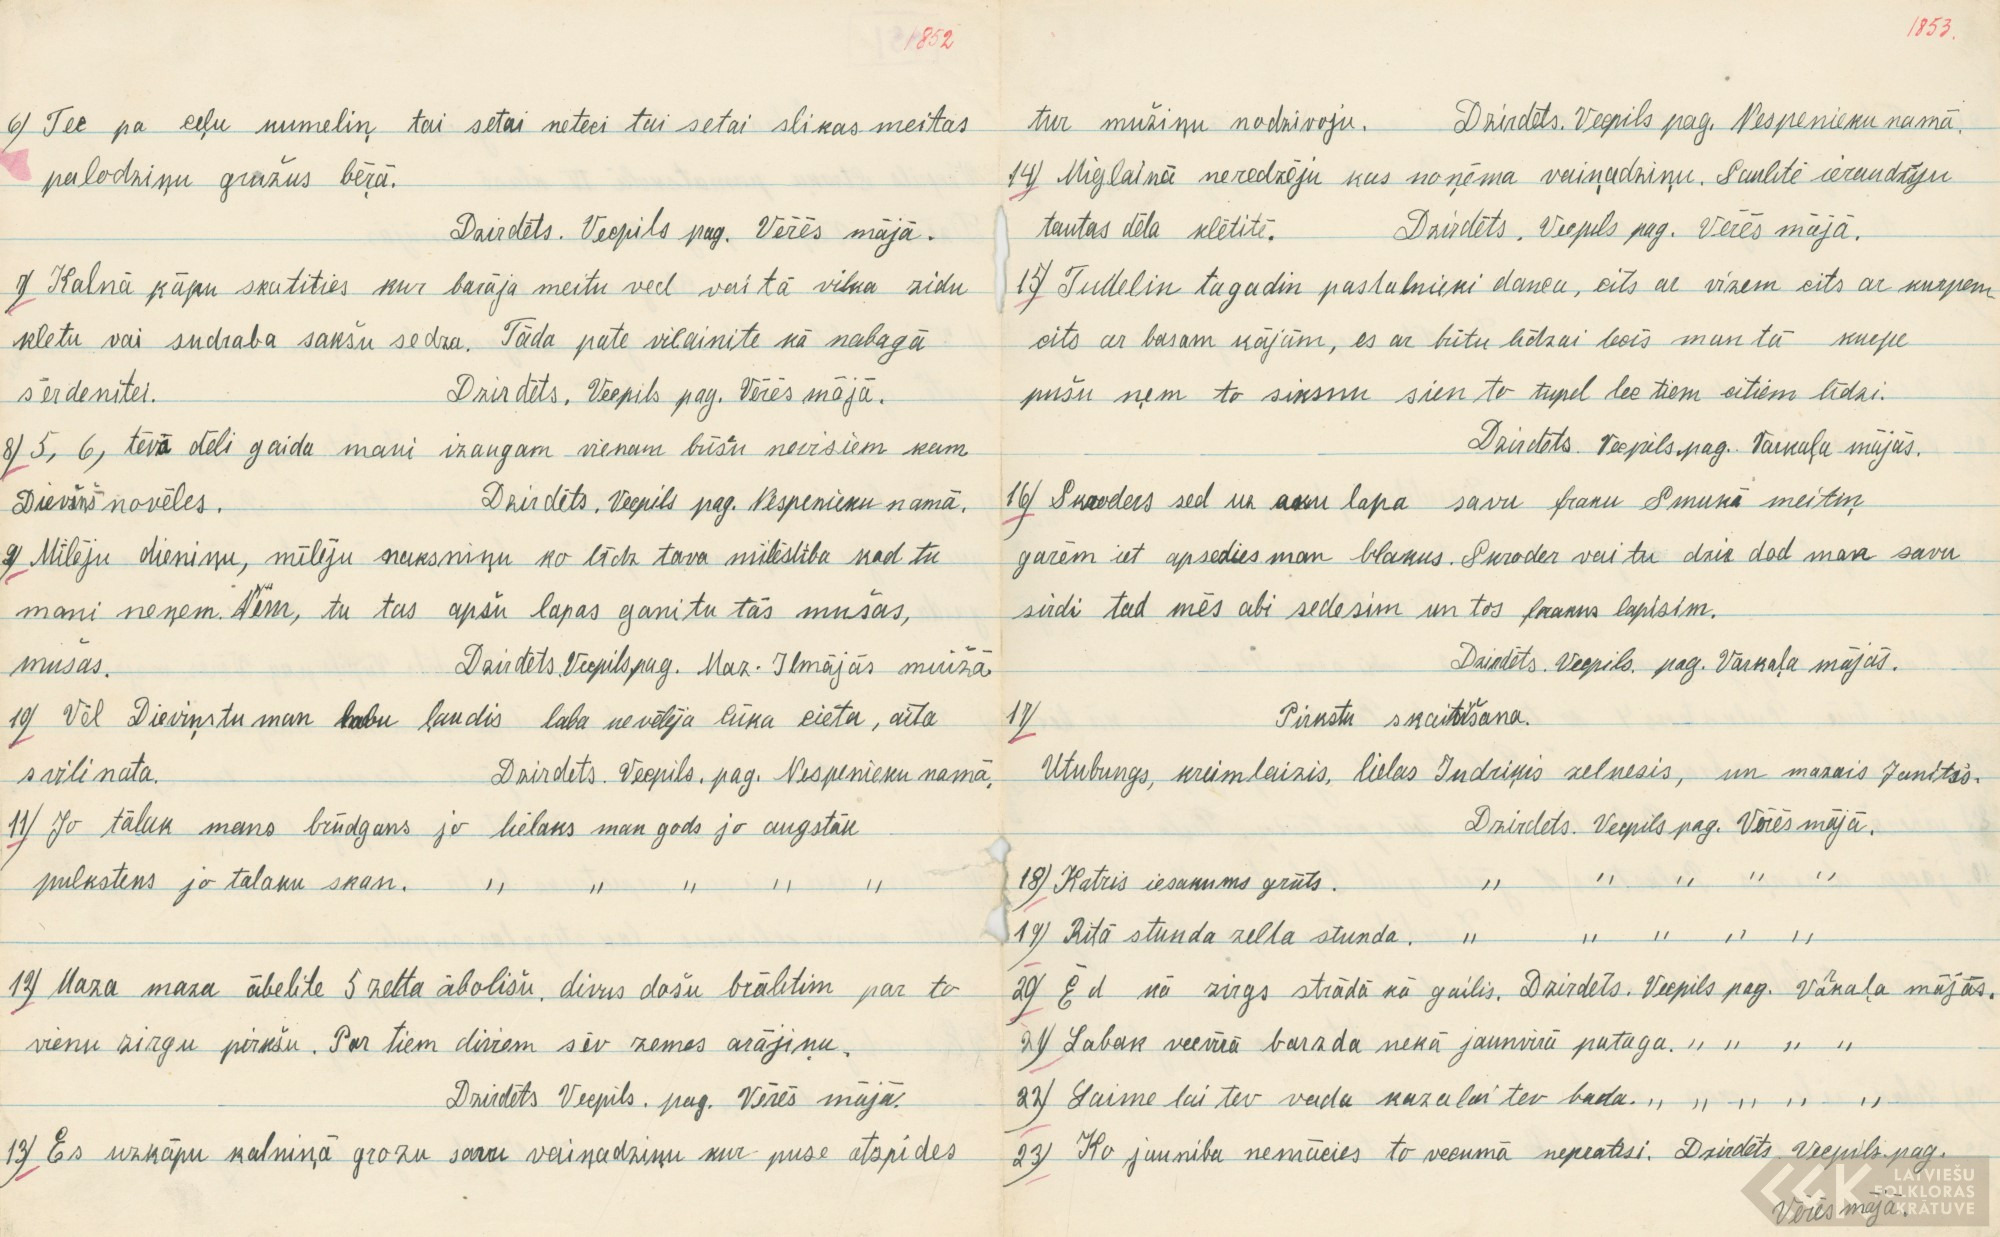 1852
6) Tec pa ceļu kumeliņ tai setai neteci tai setai slikas meitas
palodziņu gražus bēŗā.
Dzirdēts. Vecpils pag. Vērēs mājā.
7) Kalnā kāpu skatities kur barāja meitu ved vai tā vilka zidu
kletu vai sudraba sakšu sedza. Tāda pate vilainite kā nabagā
sērdenitei. Dzirdēts. Vecpils pag. Vērēs mājā.
8) 5, 6, tēvā dēli gaida mani izaugam vienam būšu nevisiem kam
Dieviņš novēles. Dzirdēts. Vecpils pag. Vespenieku namā.
9) Mīlēju dieniņu, mīlēju naksniņu ko līdz tava milēstība kad tu
mani neņem. Ņēm, tu tas apšu lapas ganitu tās mušas,
mušas. Dzirdēts. Vecpils pag. Maz-Ilmājās muižā
10) Vēl Dieviņš tu man labu ļaudis laba nevēlēja lūka cieta, aita
svilinata. Dzirdēts. Vecpils. pag. Vespenieku namā.
11) Jo tālak mans brūdgans jo lielaks man gods jo augstāk
pulkstens jo talaku skan. " " " " "
12) Maza maza ābelite 5 zelta ābolišu, divus došu brālitim par to
vienu zirgu pirkšu. Par tiem diviem sēv zemes arājiņu.
Dzirdēts Vecpils. pag. Vērēs mājā.
13) Es uzkāpu kalniņā grozu savu vaiņadziņu kur puse atspides
1853.
tur mužiņu nodzivoju. Dzirdēts. Vecpils pag. Vespenieku namā.
14) Miglainā neredzēju kas noņēma vaiņadziņu. Saulitē ieraudzīju
tautas dēla klētitē. Dzirdēts. Vecpils pag. Vērēs mājā.
15) Tudelin tagadin pastalnieki danca, cits ar vizem cits ar kurpem
cits ar basam kājām, es ar būtu līdzai lecis man tā kurpe
pušu ņem to siksnu sien to tupel lec tiem citiem līdzi.
Dzirdēts. Vecpils pag. Varkaļa mājās.
16) Skroders sed uz aku lapa savu fraku Smukā meitiņ
garēm iet apsedies man blakus. Skroder vai tu dzir dod man savu
sirdi tad mēs abi sedesim un tos frakus lapisim.
Dzirdēts. Vecpils. pag. Varkaļa mājās.
17) Pirkstu skaitišana.
Utubungs, kreimlaizis, lielas Indriķis zelnesis, un mazais Janitis.
Dzirdēts. Vecpils pag. Vērēs mājā.
18) Katris iesakums grūts. " " " " "
19) Ritā stunda zelta stunda. " " " " "
20) Ēd kā zirgs strādā kā gailis. Dzirdēts. Vecpils pag. Vārkaļa mājās.
21) Labak vecvīrā barzda nekā jaunvīrā pataga. " " " "
22) Laime lai tev vada kaza lai tev bada. " " " " "
23) Ko jauniba nemācies to vecumā nepratisi. Dzirdēts. Vecpils. pag.
Vērēs mājā.
LATVIEŠU
FOLKLORAS
KRĀTUVE